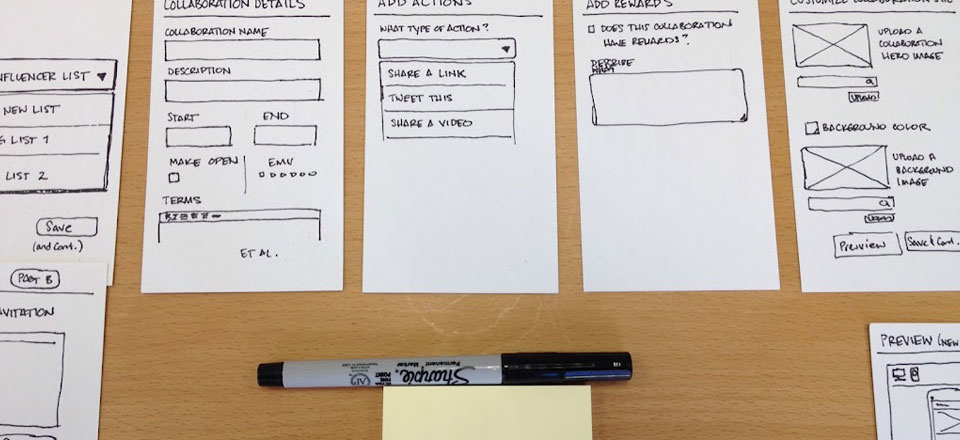 NFLUENCER LIST
NEW LIST
G LIST 1
LIST 2
Save
(and Cont.)
COLLABORATION DETAILS
COLLABORATION NAME
DESCRIPTION
START END
MAKE OPEN EMV
TERMS
B I
ET AL.
ADD ACTIONS
WHAT TYPE OF ACTION?
SHARE A LINK
TWEET THIS
SHARE A VIDEO
ADD REWARDS
DOES THIS COLLABORATION
HAVE REWARDS?
DESCRIBE
CUSTOMIZE COLLABORATION SITE
UPLOAD A
COLLABORATION
HERO IMAGE
UPLOAD
BACKGROUND COLOR
UPLOAD A
BACKGROUND
IMAGE
UPLOAD
Preview Save & Cont.
PART B
VITATION
Sharpie
Permanent Marker
FINE
POINT
PREVIEW (NEW